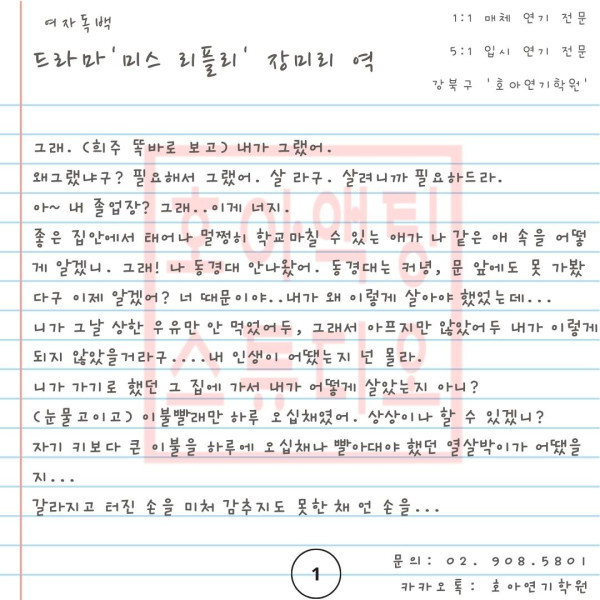 여자독백
1:1 매체 연기 전문
드라마'미스 리플리' 장미리 역
5:1 입시 연기 전문
강북구 '호아연기학원'
그래. (희주 똑바로 보고) 내가 그랬어.
왜그랬냐구? 필요해서 그랬어. 살 라구. 살려니까 필요하드라.
아~ 내 졸업장? 그래..이게 너지.
좋은 집안에서 태어나 멀쩡히 학교마칠 수 있는 애가 나 같은 애 속을 어떻
게 알겠니. 그래! 나 동경대 안나왔어. 동경대는 커녕, 문 앞에도 못 가봤
다구 이제 알겠어? 너 때문이야..내가 왜 이렇게 살아야 했었는데...
니가 그날 상한 우유만 안 먹었어두, 그래서 아프지만 않았어두 내가 이렇게
되지 않았을거라구....내 인생이 어땠는지 넌 몰라.
니가 가기로 했던 그 집에 가서 내가 어떻게 살았는지 아니?
(눈물고이고) 이불빨래만 하루 오십채였어. 상상이나 할 수 있겠니?
자기 키보다 큰 이불을 하루에 오십채나 빨아대야 했던 열살박이가 어땠을
지...
갈라지고 터진 손을 미처 감추지도 못한 채 언 손을...
호아액팅
스튜디오
1
문의: 02. 908.5801
카카오톡: 호아연기학원